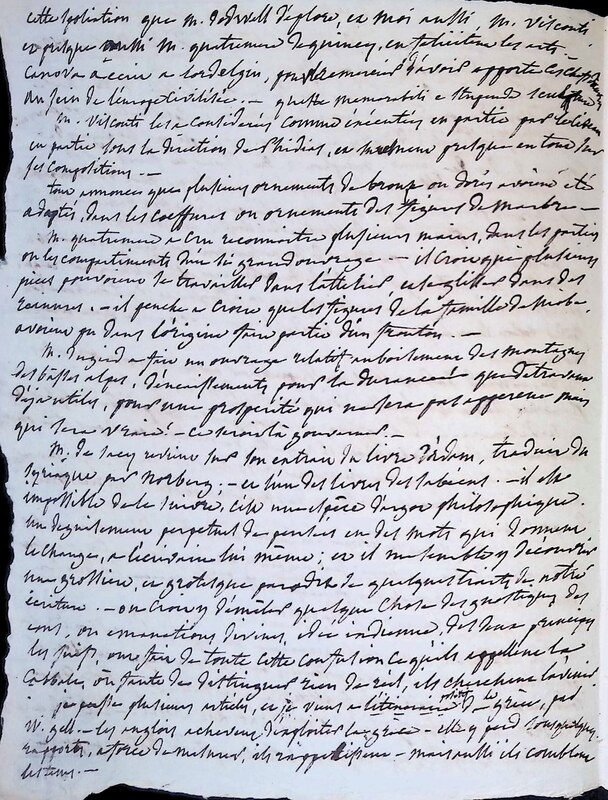 cette spoliation que m. Dodwell déplore, et moi aussi, m. Visconti
et presque aussi m. quatremere de quincy, en félicitent les arts
Canova a écrit a lord elgin, pour le remercier d'avoir apporté ces chefs
au sein de l'europe civilisée. — queste memorabili e stupende sculture
m. Visconti les a considerés comme exécutés en partie par
en partie sous la direction de Phidias, et même presque en tout sur
ses compositions. —
tout annonce que plusieurs ornements de bronze ou dorés avoient été
adaptés, dans les coeffures ou ornements des figures de marbre —
m. quatremere a cru reconnoitre plusieurs mains, dans les parties
ou les compartiments d'un si grand ouvrage. — il croit que plusieurs
pieces pouvoient se travailler dans l'attelier, dans des
rainures. — il penche a croire que les figures de la famille de niobé
avoient pu dans l'origine faire partie d'un fronton. —
m. a fait un ouvrage relatif au boisement des montagnes
des basses alpes, d'encaissements pour la durance que de travaux
déja utiles, pour une prosperité qui ne sera pas apparente mais
qui sera vraie! — ce seroit là gouverner. —
m. de sacy revient sur son extrait du livre d'adam, traduit du
syriaque par Norberg. — est l'un des livres des sabéens. — il est
impossible de le suivre, c'est une espèce d'argot philosophique.
un deguisement perpetuel de pensées en des mots qui donnent
le change, a l'écrivain lui même; et il me semble y découvrir
une grossiere, et grotesque parodie de quelques traits de notre
écriture. — on croit y démêler quelque chose des gnostiques, des
eons, ou emanations divines, idée indienne, des deux principes
les juifs, ont fait de toute cette confusion ce qu'ils appellent la
Cabbale, et faute de distinguer rien de réel, ils cherchent
je passe plusieurs articles, et je viens a l'itineraire de la grèce, par
W. gell — les anglois achevent d'exploiter la grèce — elle y perd sous quelques
rapports, a force de mesurer, ils rapetissent — mais aussi ils comblent